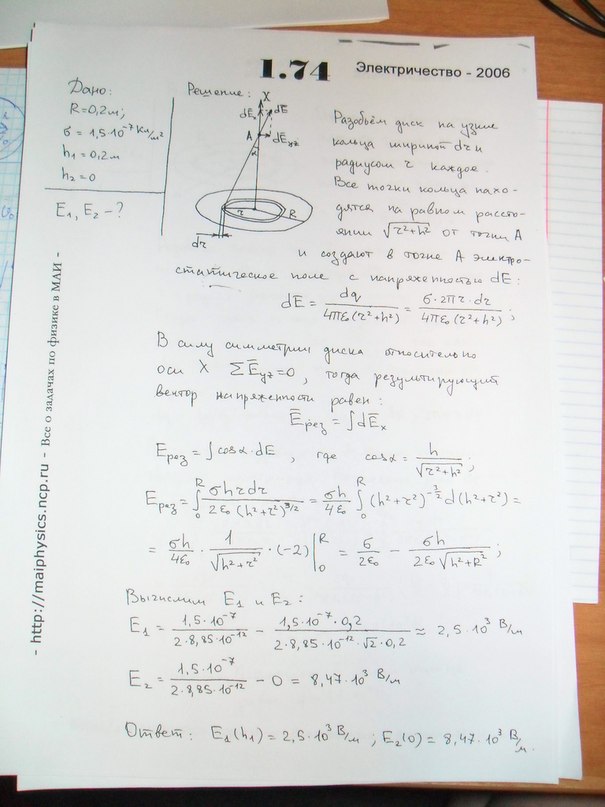 1.74 Электричество - 2006
Дано:
R=0,2м;
σ = 1,5·10⁻⁷ Кл/м²
h₁=0,2м
h₂=0
E₁, E₂ - ?
Решение:
X
dEₓ
dE
A
dE_yz
α
r
R
dr
Разобьём диск на узкие
кольца шириной dr и
радиусом r каждое.
Все точки кольца нахо-
дятся на равном рассто-
янии √(r²+h²) от точки A
и создают в точке A электро-
статическое поле с напряженностью dE:
dE = dq/(4πε₀(r²+h²)) = σ·2πr·dr/(4πε₀(r²+h²));
В силу симметрии диска относительно
оси X ΣĒ_yz=0, тогда результирующий
вектор напряженности равен:
Ē_рез = ∫dĒₓ
E_рез = ∫cosα·dE, где cosα = h/√(r²+h²);
E_рез = ∫₀ᴿ σhrdr/(2ε₀(h²+r²)^(3/2)) = σh/(4ε₀) ∫₀ᴿ (h²+r²)^(-3/2) d(h²+r²) =
= σh/(4ε₀) · 1/√(h²+r²) · (-2) |₀ᴿ = σ/(2ε₀) - σh/(2ε₀√(h²+R²));
Вычислим E₁ и E₂:
E₁ = 1,5·10⁻⁷/(2·8,85·10⁻¹²) - 1,5·10⁻⁷·0,2/(2·8,85·10⁻¹²·√2·0,2) ≈ 2,5·10³ В/м
E₂ = 1,5·10⁻⁷/(2·8,85·10⁻¹²) - 0 = 8,47·10³ В/м
Ответ: E₁(h₁) = 2,5·10³ В/м; E₂(0) = 8,47·10³ В/м.
- http://maiphysics.ncp.ru - Все о задачах по физике в МАИ -